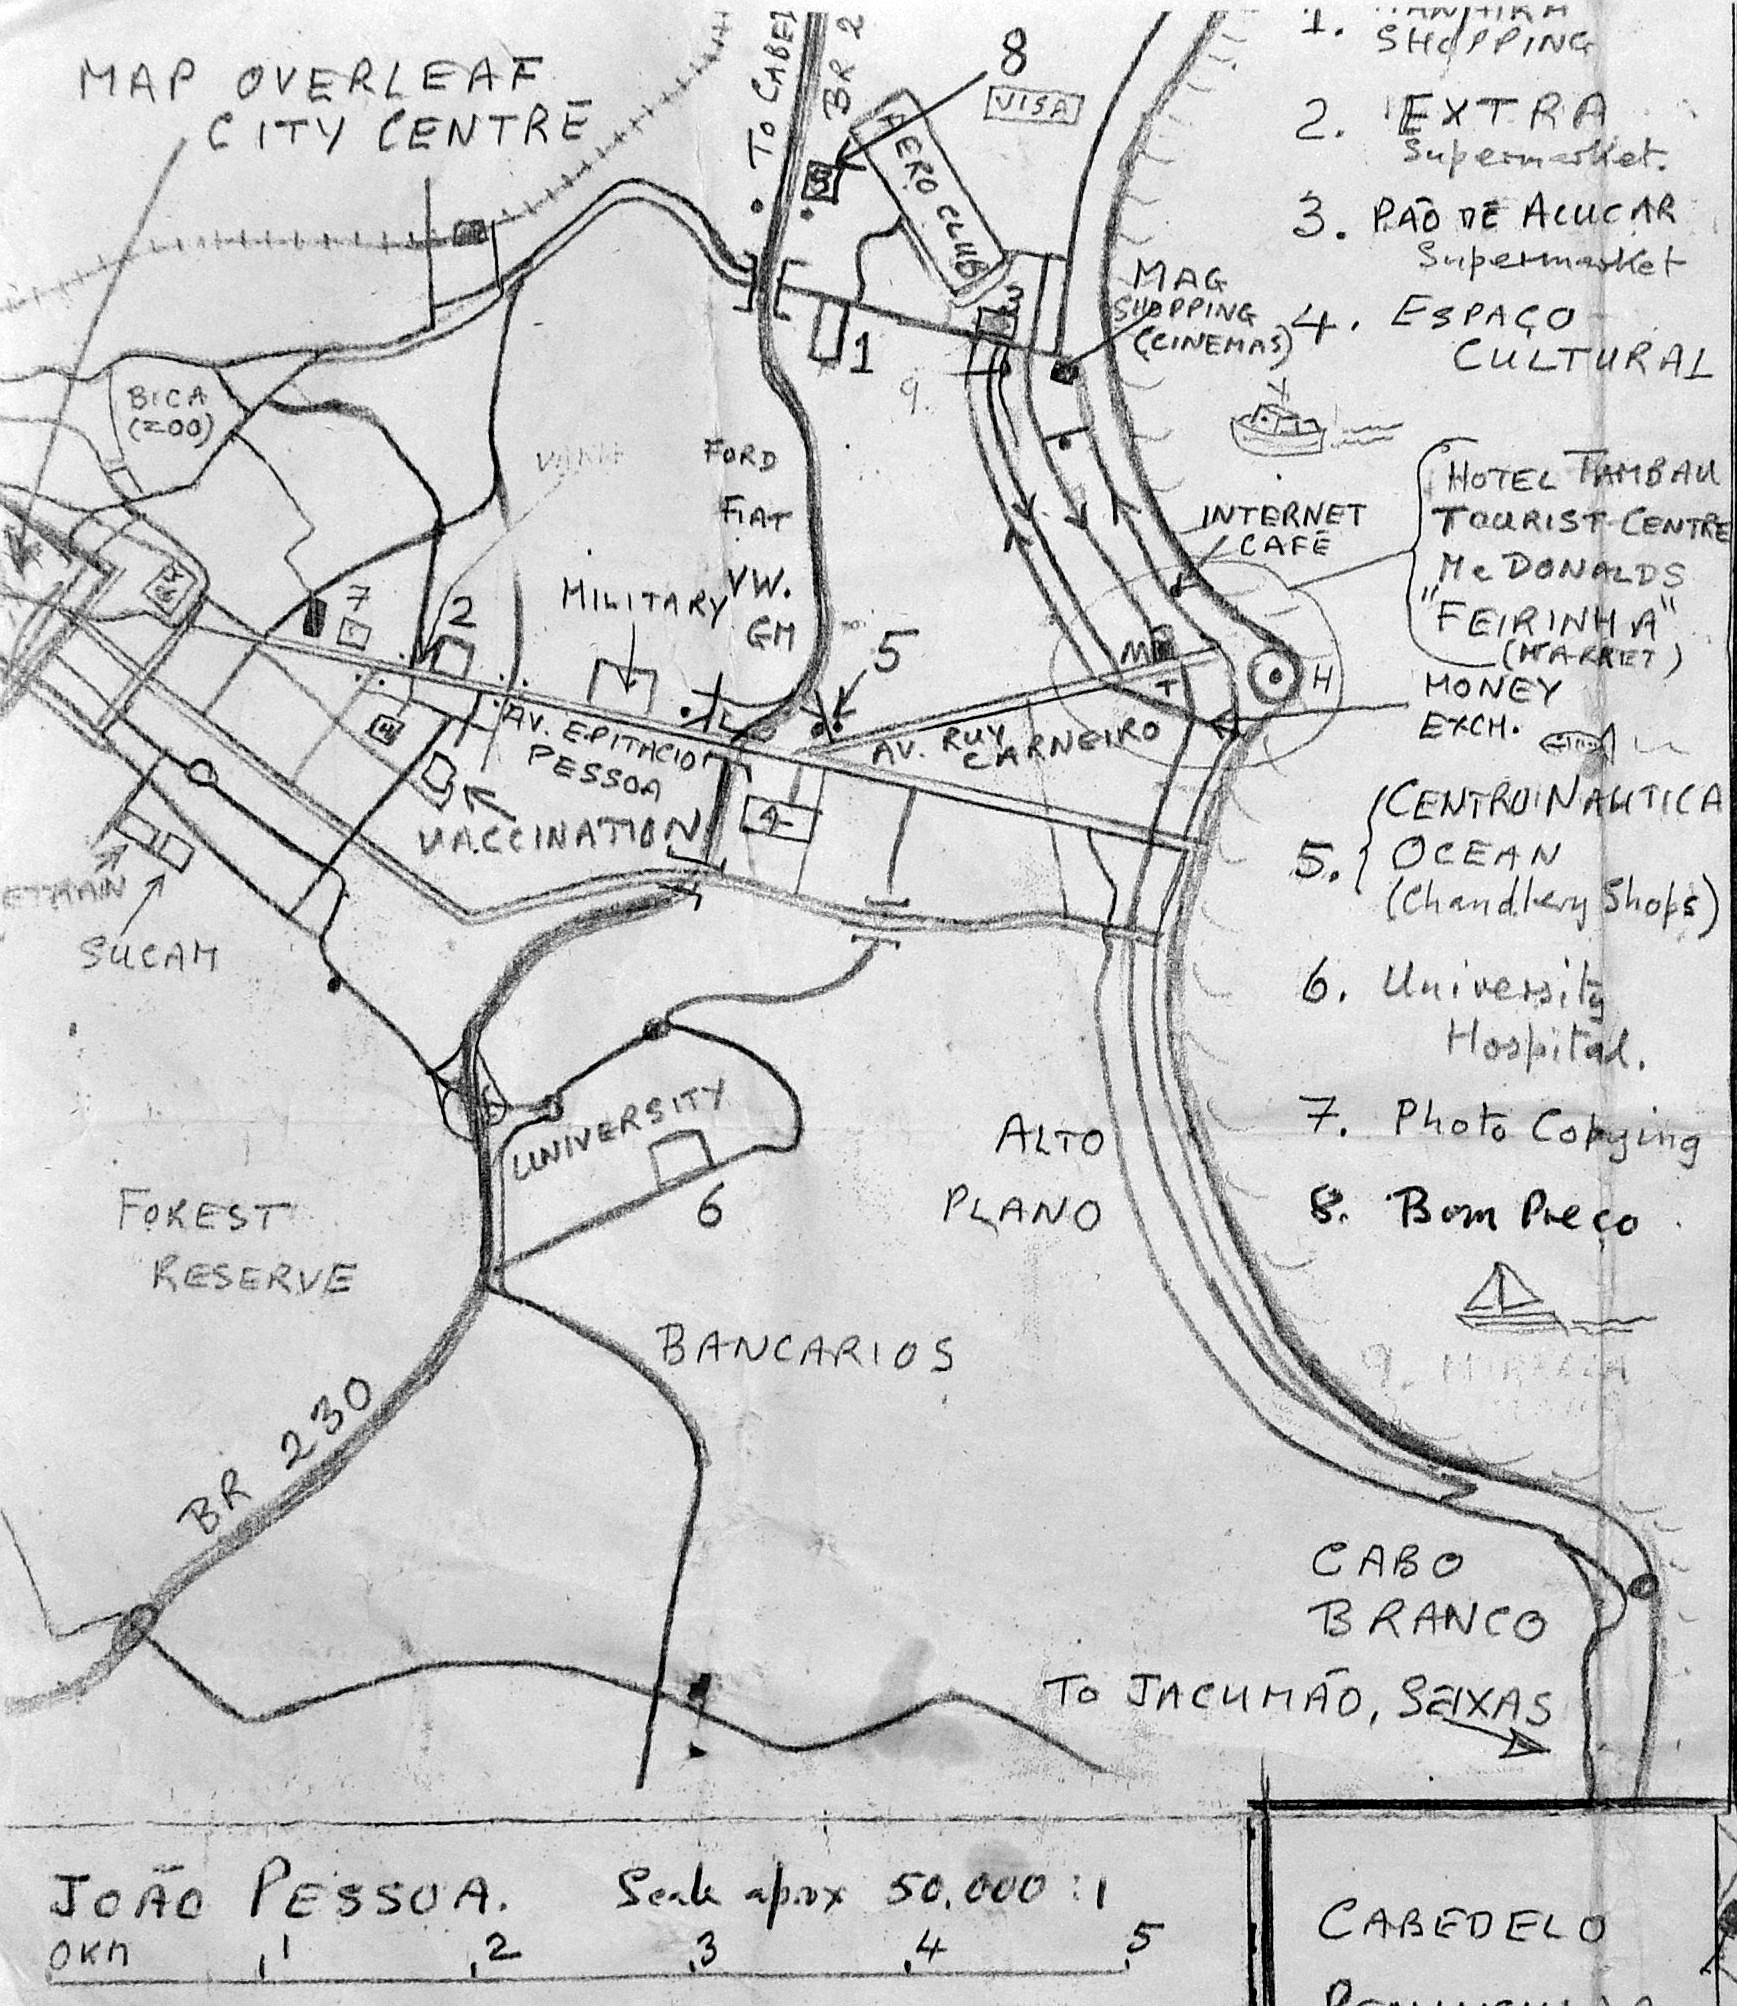 MAP OVERLEAF
CITY CENTRE
TO CABE
BR 2
8
VISA
AERO CLUB
1.
SHOPPING
2. EXTRA
Supermarket.
3. PÃO DE ACUCAR
Supermarket
4. ESPAÇO
CULTURAL
MAG
SHOPPING
(CINEMAS)
3
1
9.
BICA
(ZOO)
FORD
FIAT
VW.
GM
MILITARY
7
2
5
INTERNET
CAFÉ
HOTEL TAMBAU
TOURIST CENTRE
Mc DONALDS
"FEIRINHA"
(MARKET)
MONEY
EXCH.
M
T
H
AV. EPITACIO
PESSOA
AV. RUY
CARNEIRO
4
VACCINATION
SUCAM
5. CENTROINAUTICA
OCEAN
(Chandlery Shops)
6. University
Hospital.
7. Photo Copying
8. Bom Preço
9.
UNIVERSITY
6
ALTO
PLANO
FOREST
RESERVE
BANCARIOS
BR 230
CABO
BRANCO
TO JACUMÃO, SEIXAS
JOÃO PESSOA. Scale aprox 50.000 : 1
0KM 1 2 3 4 5
CABEDELO